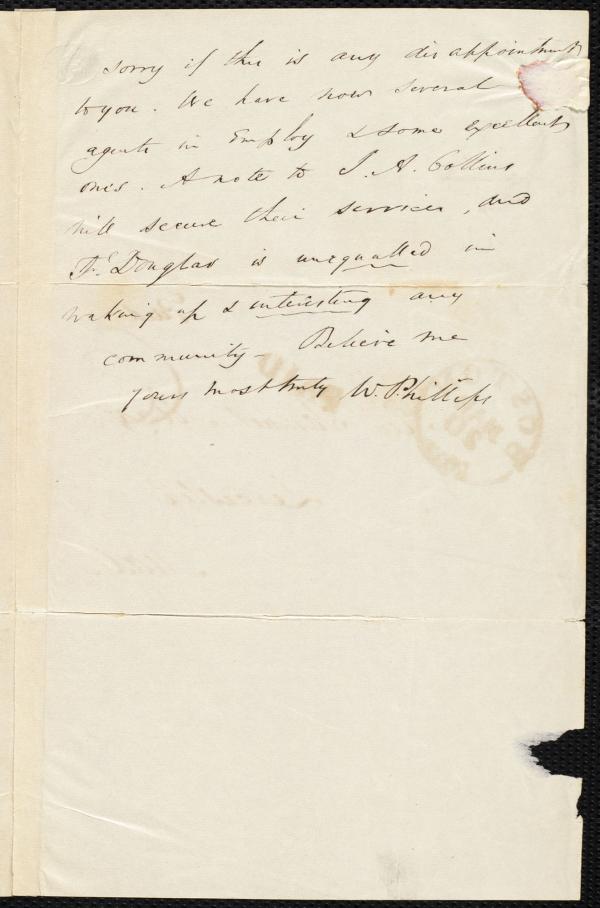 sorry if this is any disappointment
to you. We have now several
agents in Employ & some excellent
ones. A note to J. A. Collins
will secure their services, and
Fk Douglas is unequalled in
waking up & interesting any
community - Believe me
yours most truly W. Phillips